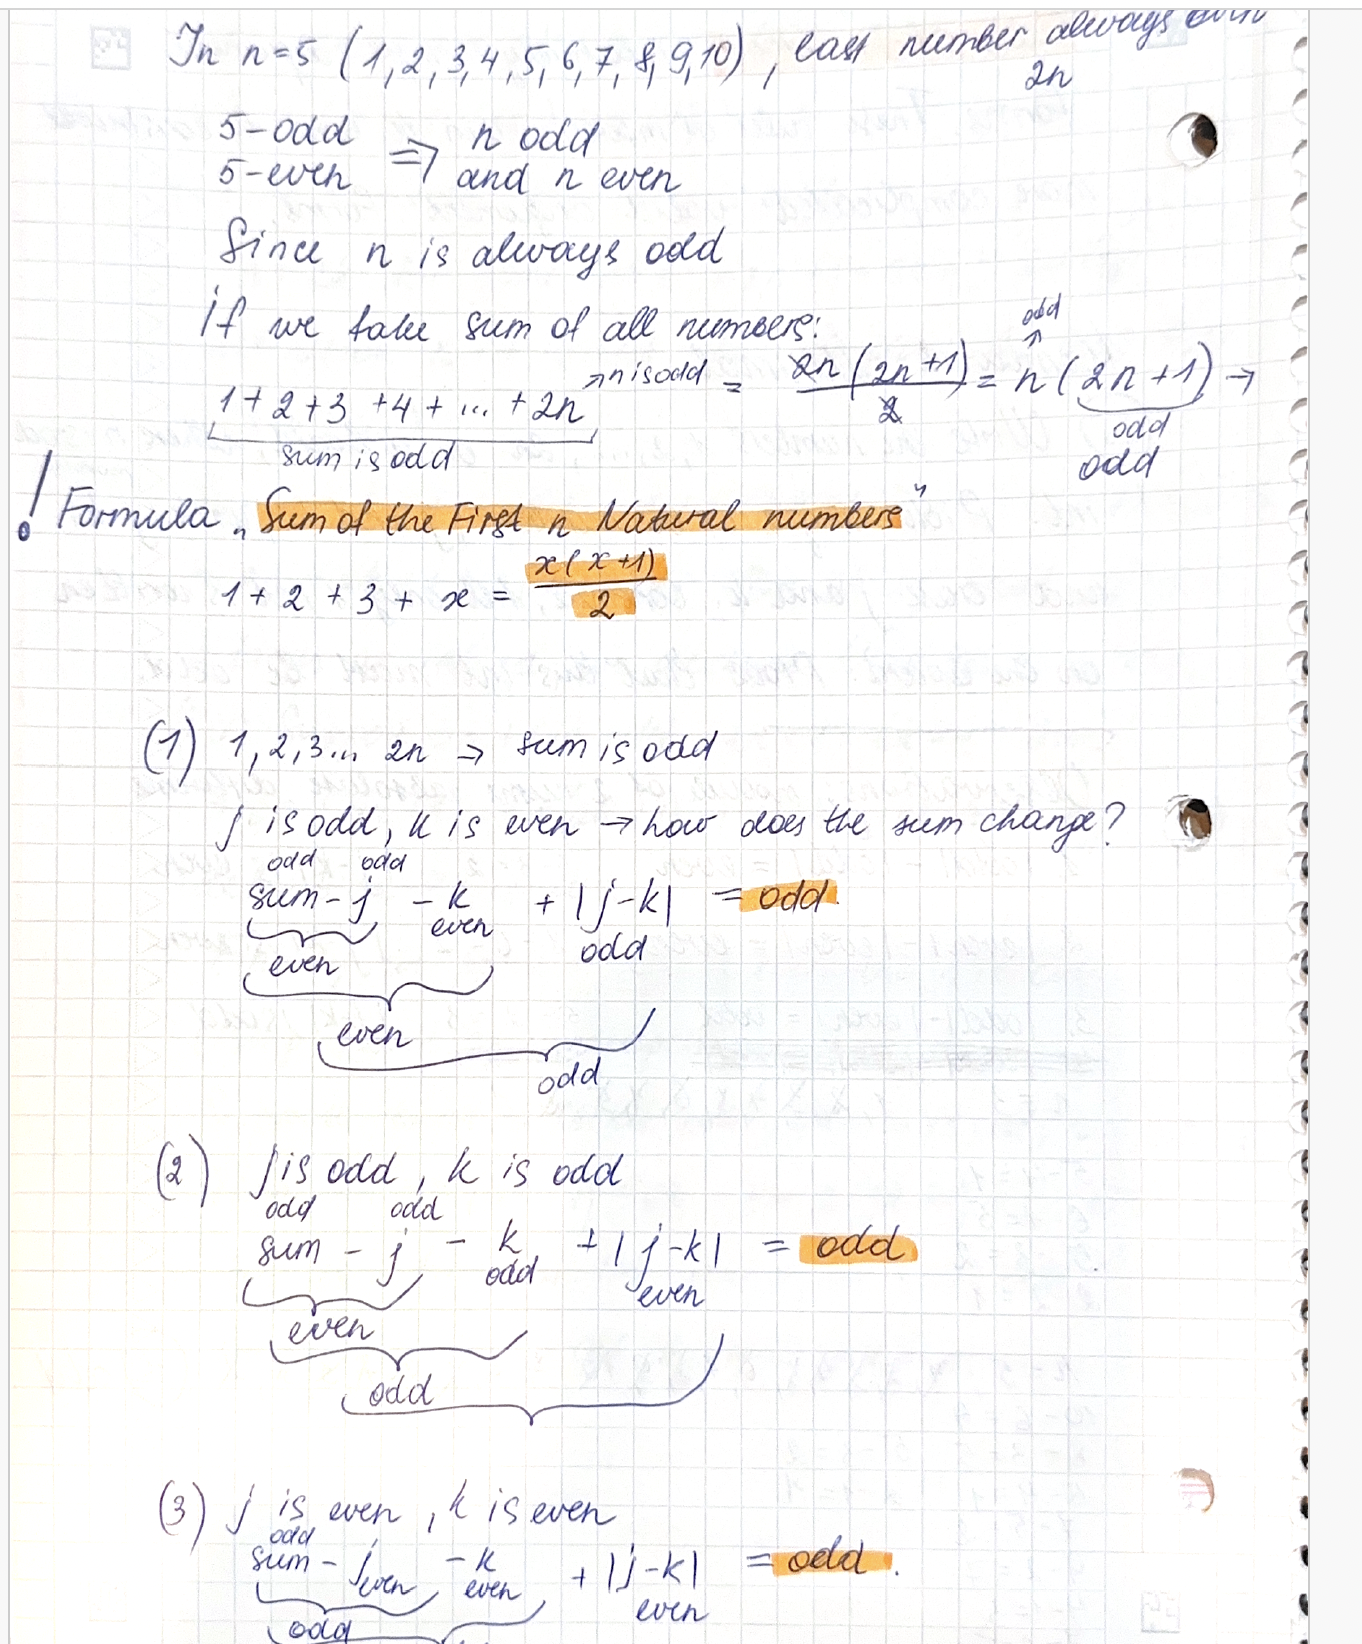 In n=5 (1,2,3,4,5,6,7,8,9,10), last number always even
2n
5-odd ⇒ n odd
5-even and n even
Since n is always odd
if we take sum of all numbers:
1+2+3+4+...+2n ↗ n is odd = 2n(2n+1)/2 = n(2n+1) →
odd
sum is odd
odd
odd
! Formula „Sum of the First n Natural numbers"
1+2+3+x = x(x+1)/2
(1) 1,2,3... 2n → sum is odd
j is odd, k is even → how does the sum change?
odd odd
sum - j - k + |j-k| = odd.
even odd
even
even
odd
(2) j is odd, k is odd
odd odd
sum - j - k + |j-k| = odd
odd even
even
odd
(3) j is even, k is even
odd
sum - j - k + |j-k| = odd.
even even even
odd